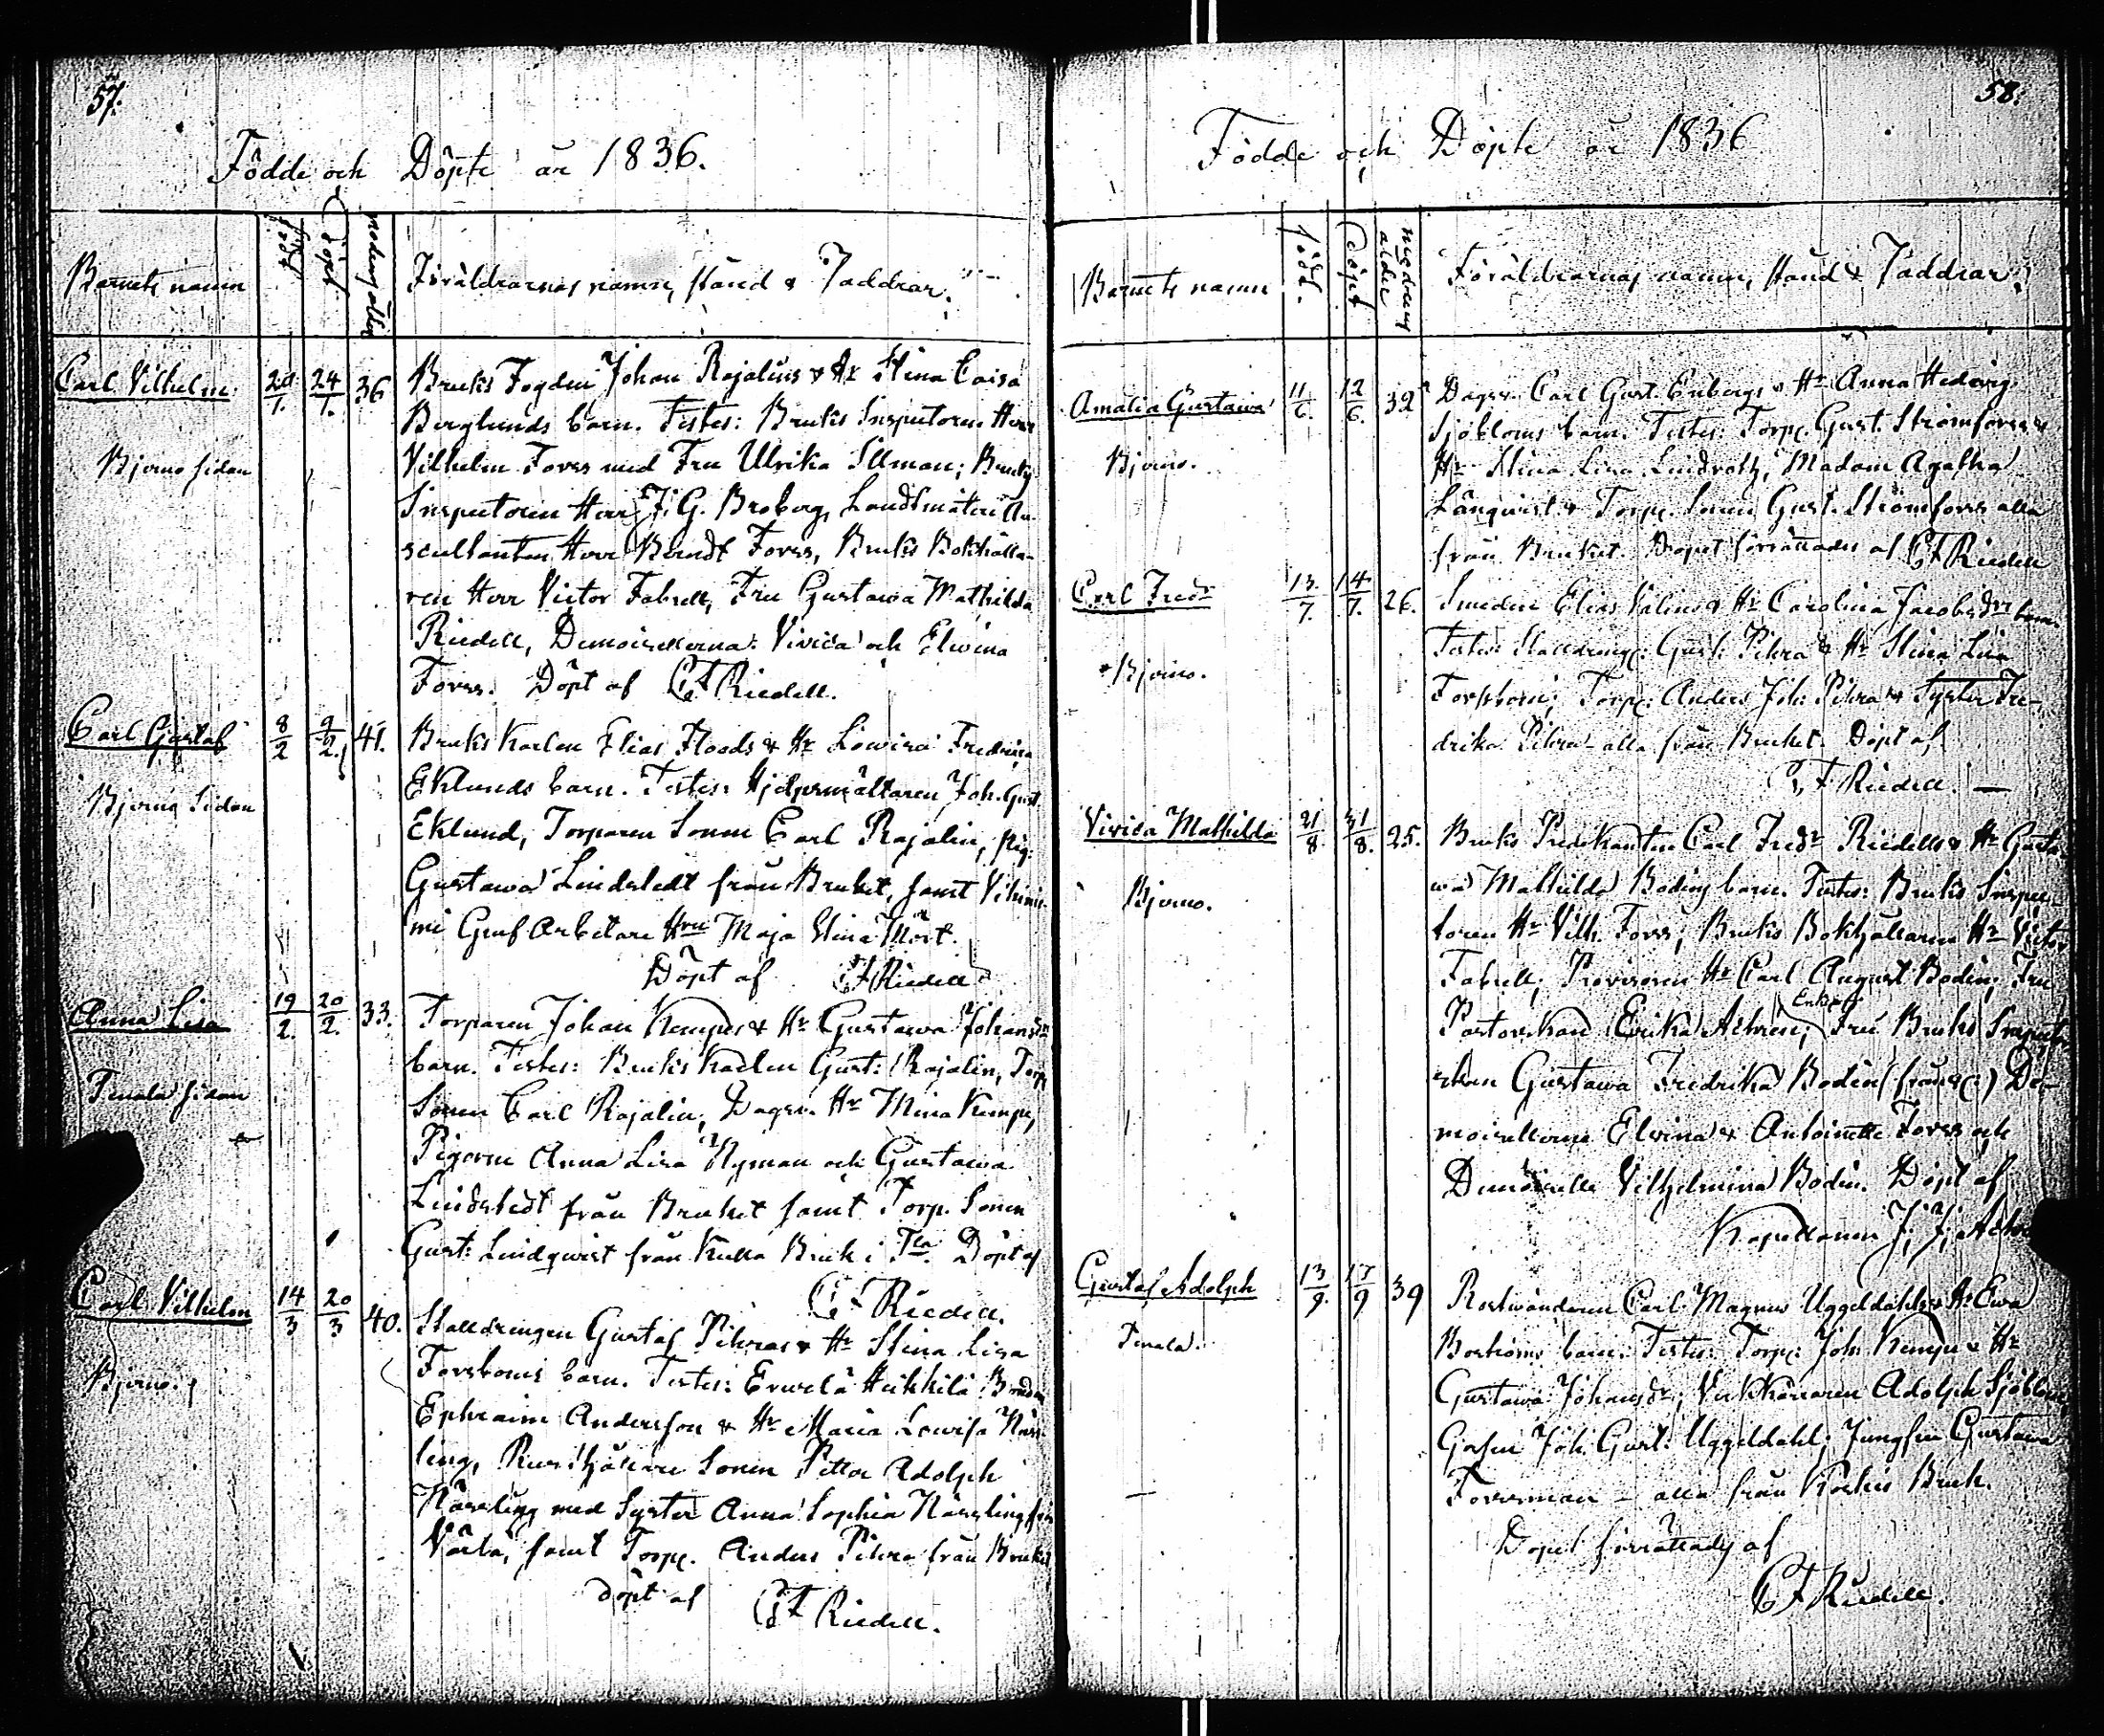 57.
Födde och Döpte år 1836.
Barnets namn
född
Döpt
modrens ålder
Föräldrarnas namn, stånd & Faddrar.
Carl Vilhelm.
24/1.
36
Bjerno sidan
Bruks Fogden Johan Rajalins & Hr Stina Caisa
Berglunds barn. Testes: Bruks Inspectoren Herr
Vilhelm Forss med Fru Ulrika Illman; Bruks
Inspectoren Herr J. G. Broberg, Landtmäteri Au-
scultanten Herr Berndt Forss, Bruks Bokhålla-
ren Herr Victor Fabrell, Fru Gustawa Mathilda
Riedell, Demoisellerna: Vivica och Elwina
Forss. Döpt af CF Riedell.
Carl Gustaf
8/2
9/2.
41.
Bjerno Sidan
Bruks Karlen Elias Floods & Hr Lowisa Fredrica
Eklunds barn. Testes: Hjelpsmältaren Joh. Gust.
Eklund, Torparen Sonen Carl Rajalin, Pig:
Gustawa Lindstedt från Bruket, samt
Gruf Arbetare Hru Maja Stina Mört.
Döpt af CF Riedell
Anna Lisa
19/2.
20/2.
33.
Tenala sidan
Torparen Johan Kempes & Hr Gustawa Johansdr
barn. Testes: Bruks Karlen Gust: Rajalin, Torp
Sonen Carl Rajalin; Dagsv. Hr Mina Kempe,
Pigorne Anna Lisa Nyman och Gustawa
Lindstedt från Bruket samt Torp. Sonen
Gust: Lindqwist från Kulla Bruk i Tla. Döpt af
CF Riedell.
Carl Vilhelm
14/3
20/3
40.
Bjerno.
Stalldrengen Gustaf Pihras & Hr Stina Lisa
Forsboms barn. Testes: Erwelä Heikkilä Bonden
Ephraim Andersson & Hr Maria Lowisa Näss-
ling, Rusthållare Sonen Petter Adolph
Nässling med Syster Anna Sophia Nässling från
samt Torp. Anders Pihra från Bruket
döpt af CF Riedell.
58.
Födde och Döpte år 1836
Barnets namn
född.
döpt
modrens ålder
Föräldrarnas namn, stånd & Faddrar.
Amalia Gustawa
11/6.
12/6.
32
Bjerno.
Dagsv. Carl Gust. Enbergs & Hr Anna Hedwig
Sjöbloms barn. Testes: Torp. Gust. Strömforss &
Hr Stina Lisa Lindroth, Madam Agatha
Långwist & Torp. Sonen Gust. Strömforss alla
från Bruket. Döpet förrättades af CF Riedell
Carl Fredr
13/7.
14/7.
26.
Bjerno.
Smeden Elias Valins & Hr Carolina Jacobsdrs barn.
Testes: Stalldrengen: Gust: Pihra & Hr Stina Lisa
Forssbom; Torp: Anders Joh: Pihra & Syster Fre-
drika Pihra - alla från Bruket. Döpt af
C. F Riedell. —
Vivica Mathilda
21/8.
31/8.
25.
Bjerno.
Bruks Predikanten Carl Fredr Riedells & Hr Gusta-
wa Mathilda Bodins barn. Testes: Bruks Inspec-
toren Hr Vilh. Forss; Bruks Bokhållaren Hr Victor
Fabrell; Provisoren Hr Carl August Bodin; Fru
Pastorskan Erika Achrén; Enkefr Fru Bruks Inspecto-
rskan Gustawa Fredrika Bodin De-
moisellerna Elvina & Antoinette Forss och
Demoiselle Vilhelmina Bodin. Döpt af
Kapellanen J. J.
Gustaf Adolph
13/9.
17/9
39
Tenala.
Rostwändaren Carl Magnus Uggeldahls & Hr Ewa
Boströms barn. Testes: Torp: Joh Kempe & Hr
Gustawa Johansdr; Adolph Sjöblom
Joh. Gust: Uggeldahl; Jungfru Gustawa
Forssman - alla från Koskis Bruk.
Döpet förrättades af
CF Riedell.